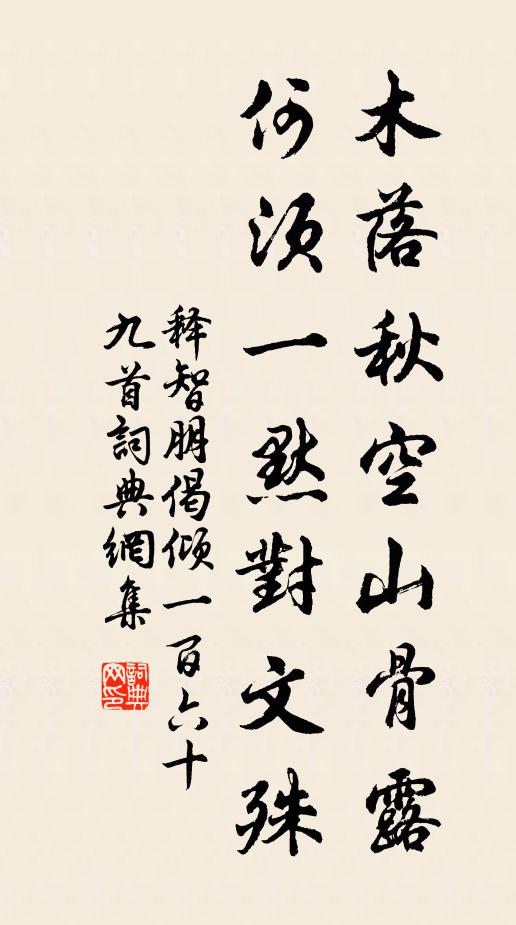 木落秋空山骨露
何須一默對文殊
释智朋偈傾一百六十
九首詞典網集
詞典
网印